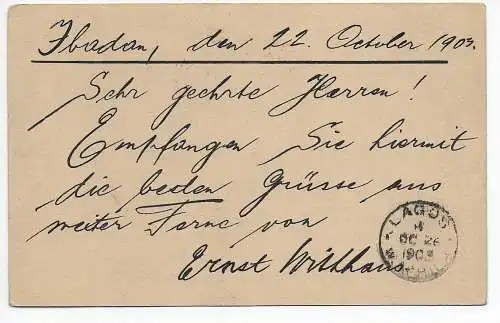 Ibadan, den 22. October 1903.
Sehr geehrte Herren!
Empfangen Sie hiermit
die beden Grüsse aus
weiter Ferne von
Ernst Witthaus
LAGOS
OC 26